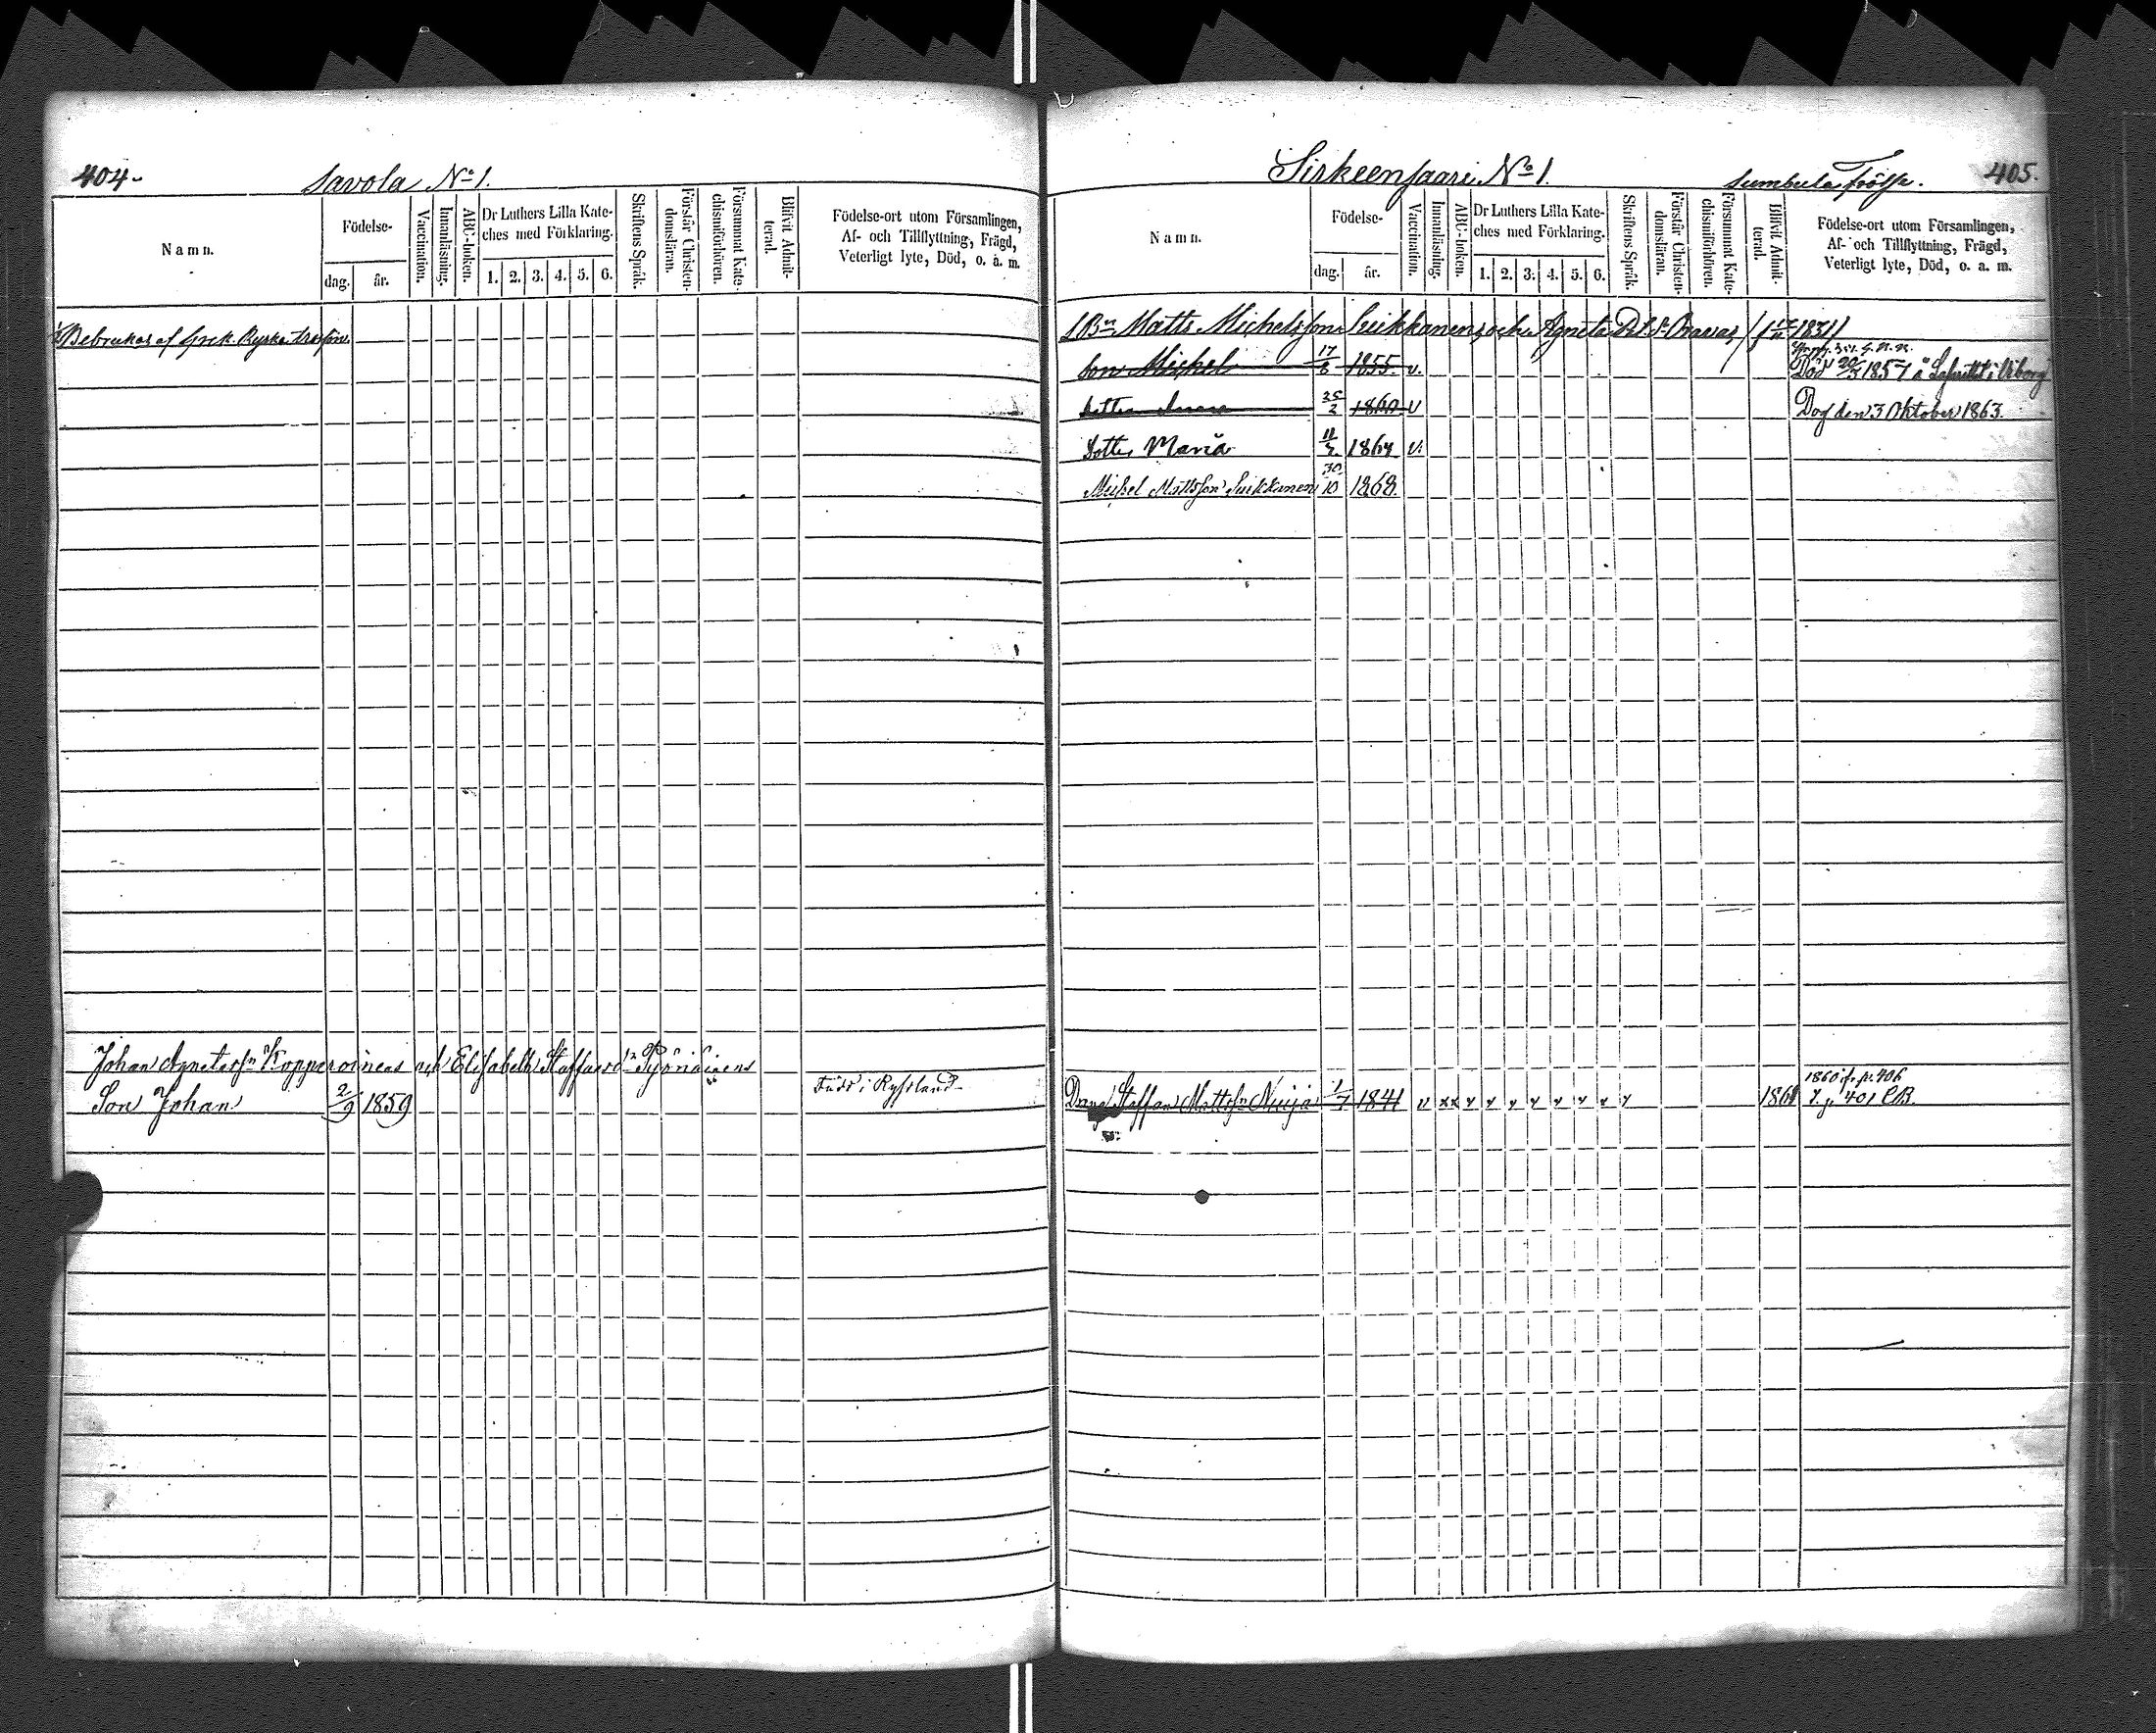 404.
Savola No 1.
Namn.
Födelse-
dag.
år.
Vaccination.
Innanläsning.
ABC-boken.
Dr Luthers Lilla Kate-
ches med Förklaring.
1. 2. 3. 4. 5. 6.
Skriftens Språk.
Förstår Christen-
domsläran.
Försummat Kate-
chismiförhören.
Blifvit Admit-
terad.
Födelse-ort utom Församlingen,
Af- och Tillflyttning, Frägd,
Veterligt lyte, Död, o. a. m.
Bebrukas af Grek. Ryska
Johan Kopperoinens och Elisabeth
Född i Ryssland
Son Johan 2/9 1859
Sirkeensaari No 1.
Sumbula Frälse.
405.
Namn.
Födelse-
dag.
år.
Vaccination.
Innanläsning.
ABC-boken.
Dr Luthers Lilla Kate-
ches med Förklaring.
1. 2. 3. 4. 5. 6.
Skriftens Språk.
Förstår Christen-
domsläran.
Försummat Kate-
chismiförhören.
Blifvit Admit-
terad.
Födelse-ort utom Församlingen,
Af- och Tillflyttning, Frägd,
Veterligt lyte, Död, o. a. m.
Matts Michelsson Suikkanens och Agneta 1831)
Son Michel 17/6 1855. v. Död 1857 å i Viborg
25/2 1860 v Dog den 3 Oktober 1863.
Dotter Maria 11/ 1864 v.
Michel Mattsson Suikkanen 30/10 1868.
1860 fr. p. 406
Dräng Staffan Mattsn Nuija 1/7 1841 v xx y y y y y y y y y 1861 401 CB.